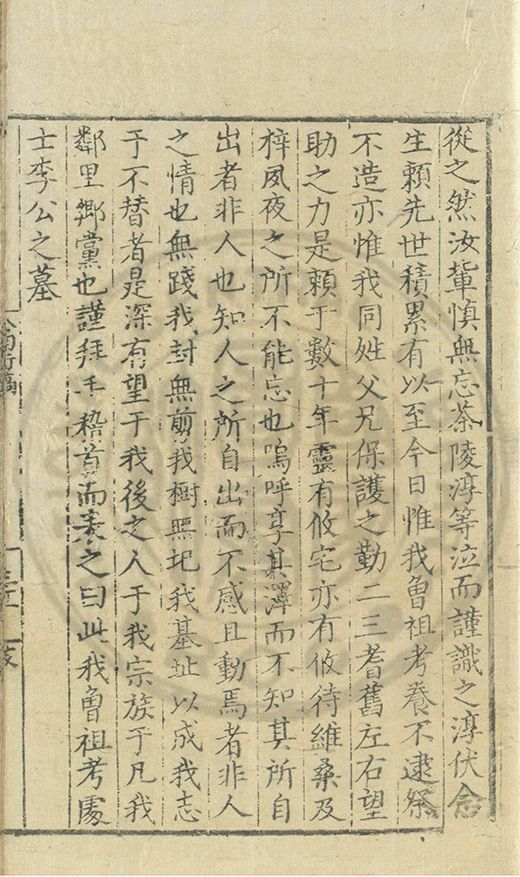 從之然汝輩慎無忘茶陵淳等泣而謹識之淳伏念
生頼先世積累有以至今日惟我魯祖考養不逮祭
不造亦惟我同姓父兄保護之勤二三耆舊左右望
助之力是頼于數十年靈有攸宅亦有攸待維桑及
梓夙夜之所不能忘也嗚呼享其澤而不知其所自
出者非人也知人之所自出而不感且動焉者非人
之情也無踐我封無剪我樹無圮我墓址以成我志
于不替者是深有望于我後之人于我宗族于凡我
鄰里鄉黨也謹拜手稽首而表之曰此我魯祖考處
士李公之墓